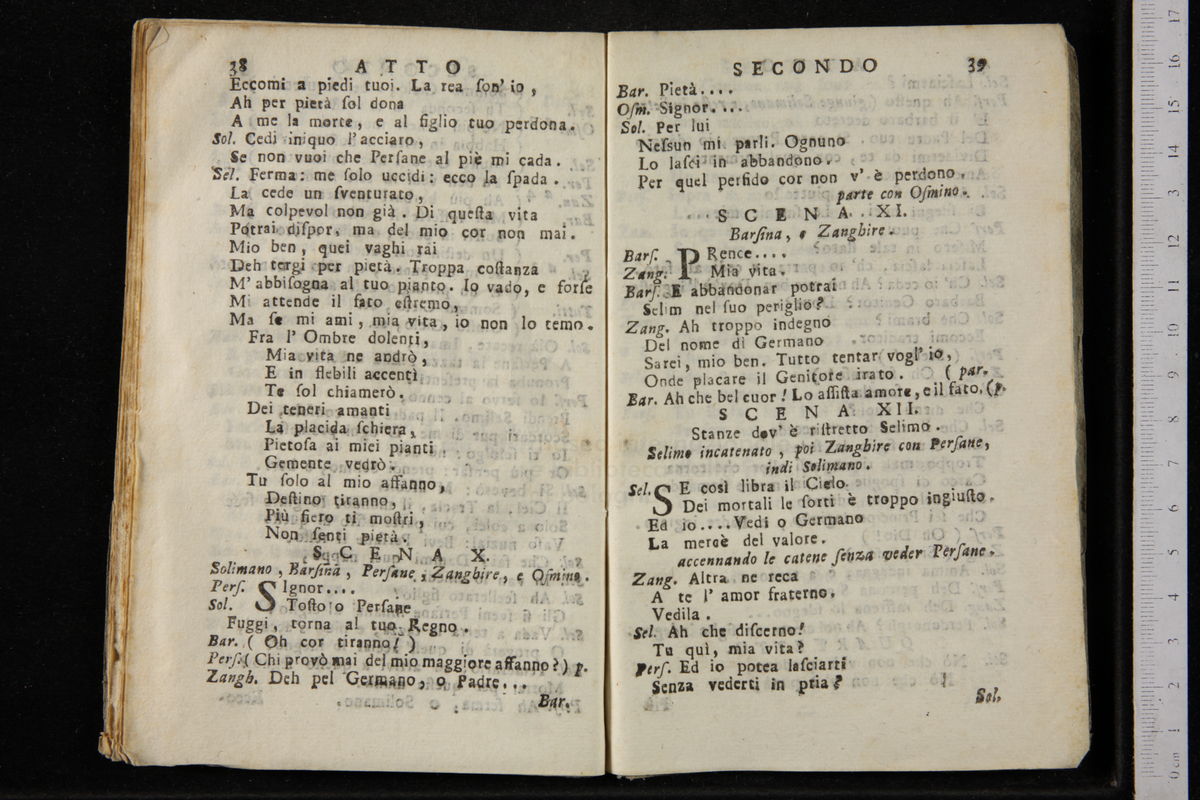 38 ATTO
Eccomi a piedi tuoi. La rea ſon' io,
Ah per pietà ſol dona
A me la morte, e al figlio tuo perdona.
Sol. Cedi iniquo l' acciaro,
Se non vuoi che Perſane al piè mi cada.
Sel. Ferma: me ſolo uccidi: ecco la ſpada.
La cede un ſventurato,
Ma colpevol non già. Di queſta vita
Potrai diſpor, ma del mio cor non mai.
Mio ben, quei vaghi rai
Deh tergi per pietà. Troppa coſtanza
M' abbiſogna al tuo pianto. Io vado, e forſe
Mi attende il fato eſtremo,
Ma ſe mi ami, mia vita, io non lo temo.
Fra l' Ombre dolenti,
Mia vita ne andrò,
E in flebili accenti
Te ſol chiamerò.
Dei teneri amanti
La placida ſchiera,
Pietoſa ai miei pianti
Gemente vedrò.
Tu ſolo al mio affanno,
Deſtino tiranno,
Più fiero ti moſtri,
Non ſenti pietà.
SCENA X.
Solimano, Barſina, Perſane, Zanghire, e Oſmino.
Perſ. SIgnor....
Sol. Toſto o Perſane
Fuggi, torna al tuo Regno.
Bar. (Oh cor tiranno!)
Perſ. (Chi provò mai del mio maggiore affanno?) p.
Zangh. Deh pel Germano, o Padre...
Bar.
SECONDO 39
Bar. Pietà....
Oſm. Signor....
Sol. Per lui
Neſſun mi parli. Ognuno
Lo laſci in abbandono.
Per quel perfido cor non v' è perdono.
parte con Oſmino.
SCENA XI.
Barſina, e Zanghire.
Barſ. PRence....
Zang. Mia vita.
Barſ. E abbandonar potrai
Selim nel ſuo periglio?
Zang. Ah troppo indegno
Del nome di Germano
Sarei, mio ben. Tutto tentar vogl' io,
Onde placare il Genitore irato. (par.
Bar. Ah che bel cuor! Lo aſſiſta amore, e il fato. (p.
SCENA XII.
Stanze dov' è riſtretto Selimo.
Selimo incatenato, poi Zanghire con Perſane,
indi Solimano.
Sel. SE così libra il Cielo
Dei mortali le ſorti è troppo ingiuſto.
Ed io.... Vedi o Germano
La mercè del valore.
accennando le catene ſenza veder Perſane.
Zang. Altra ne reca
A te l' amor fraterno.
Vedila.
Sel. Ah che diſcerno!
Tu quì, mia vita?
Perſ. Ed io potea laſciarti
Senza vederti in pria?
Sol.